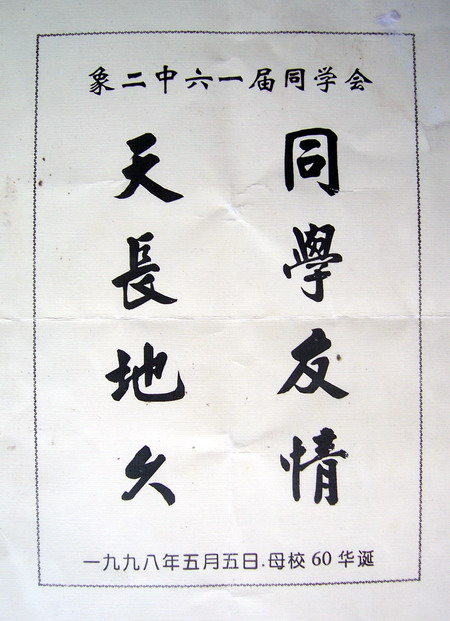 象二中六一届同学会
同學友情
天長地久
一九九八年五月五日.母校60华诞